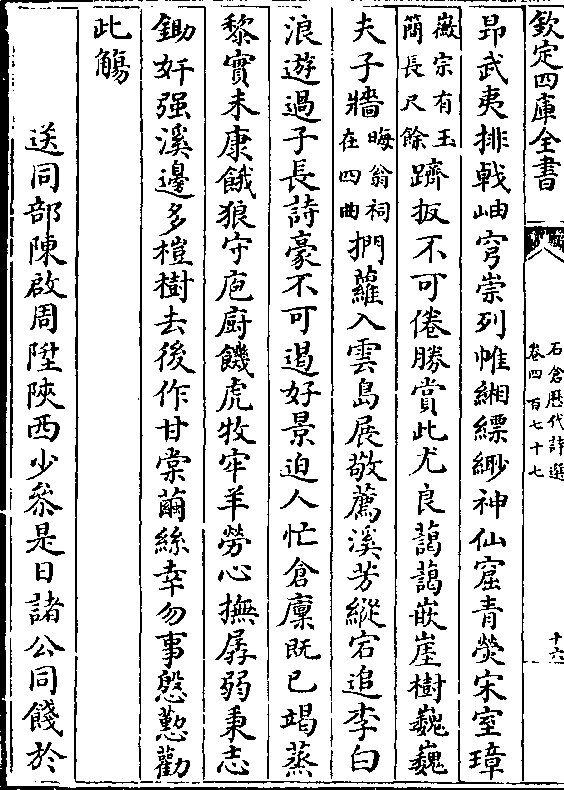 欽定四庫全書
石倉歷代詩選
卷四百七十七
十六
昂武夷排戟岫穹崇列帷緗縹緲神仙窟青熒宋室璋
徽宗有玉
簡長尺餘
躋扳不可倦勝賞此尤良藹藹嵌崖樹巍巍
夫子牆
晦翁祠
在四曲
捫蘿入雲島展敬薦溪芳縱宕追李白
浪遊過子長詩豪不可遏好景迫人忙倉廩既已竭蒸
黎實未康餓狼守庖廚饑虎牧牢羊勞心撫孱弱秉志
鋤奸强溪邊多榿樹去後作甘棠繭絲幸勿事慇懃勸
此觴
送同部陳啟周陞陝西少叅是日諸公同餞於